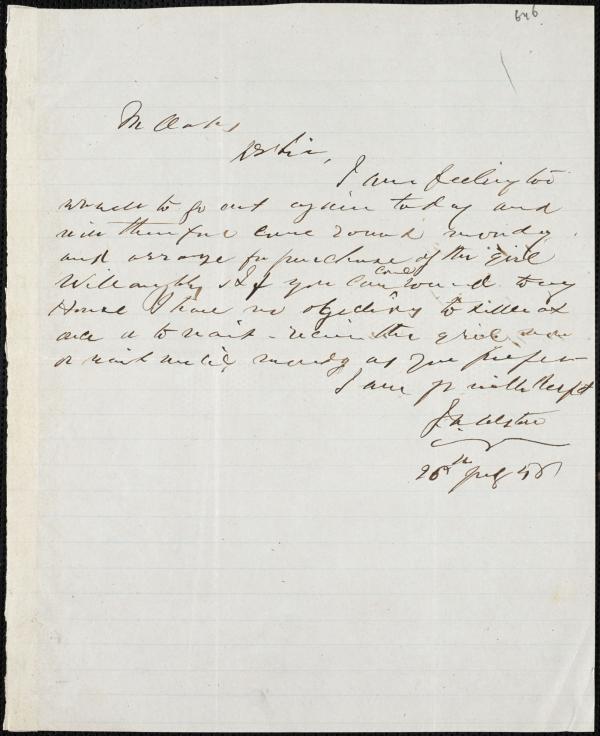 646
Mr Oakes
Dr Sir,
I am feeling too
unwell to go out again today and
will therefore come round monday
and arrange for purchase of the girl
Willoughby &c If you can come round to my
House I have no objections to settle at
once or to wait - receive the girl now
or wait until monday as you prefer
I am yr with Respt
J. A. Alston
26th July 56